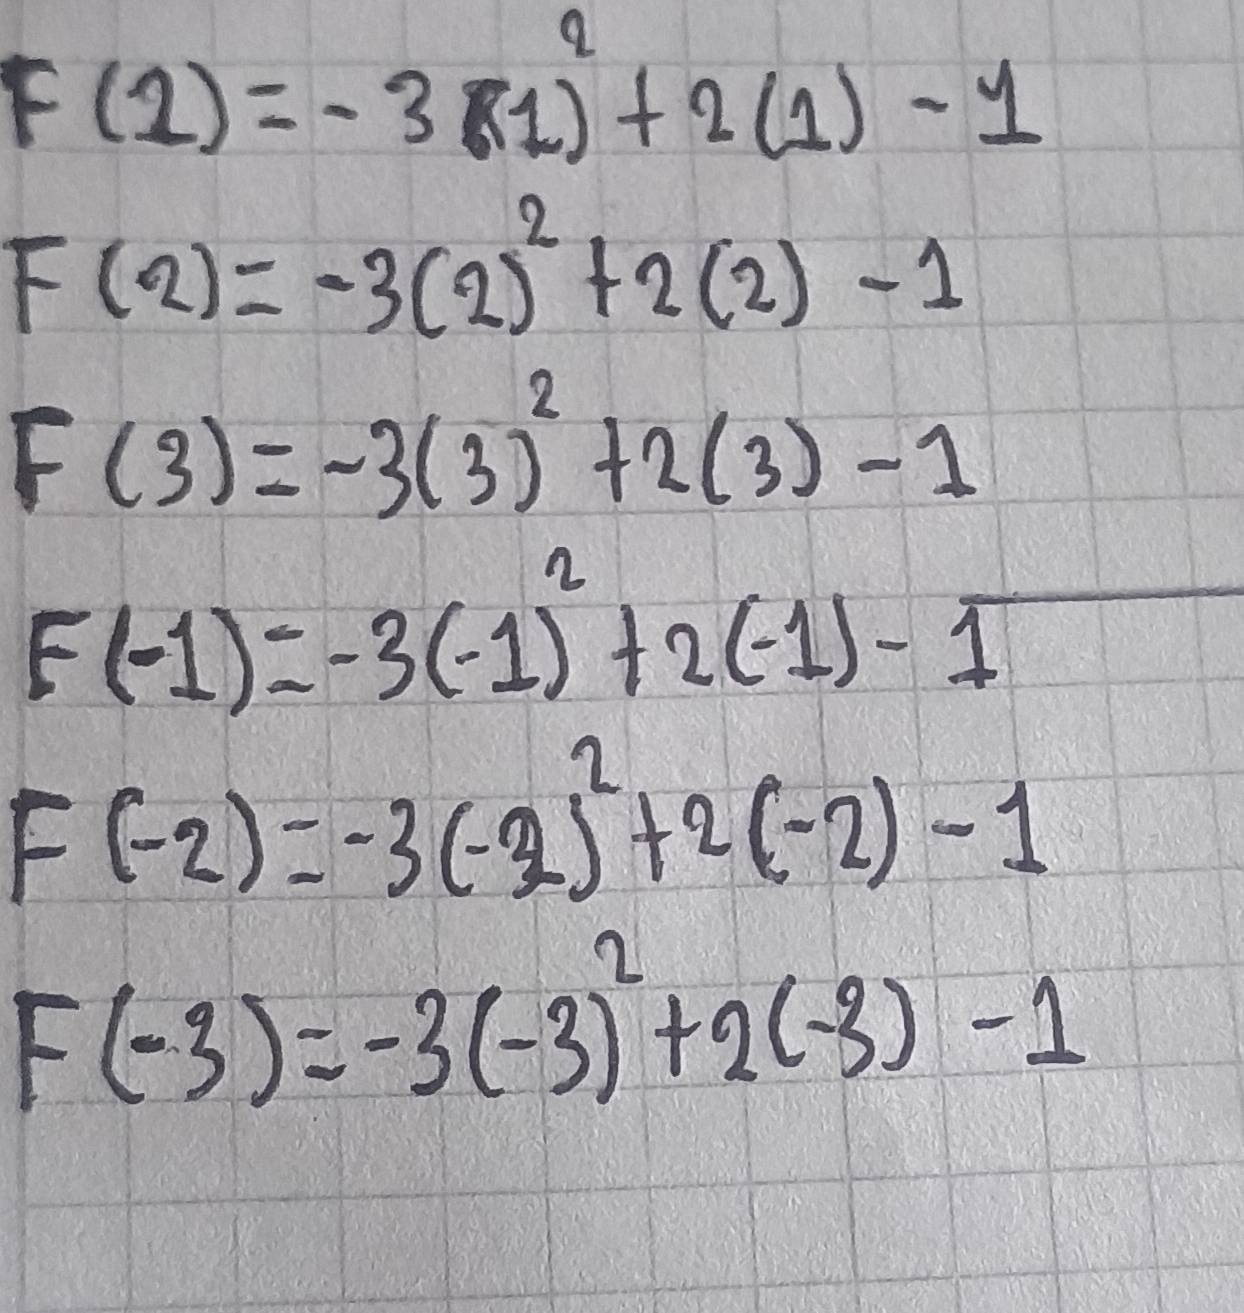 F(1) = -3(1)² + 2(1) - 1
F(2) = -3(2)² + 2(2) - 1
F(3) = -3(3)² + 2(3) - 1
F(-1) = -3(-1)² + 2(-1) - 1
F(-2) = -3(-2)² + 2(-2) - 1
F(-3) = -3(-3)² + 2(-3) - 1